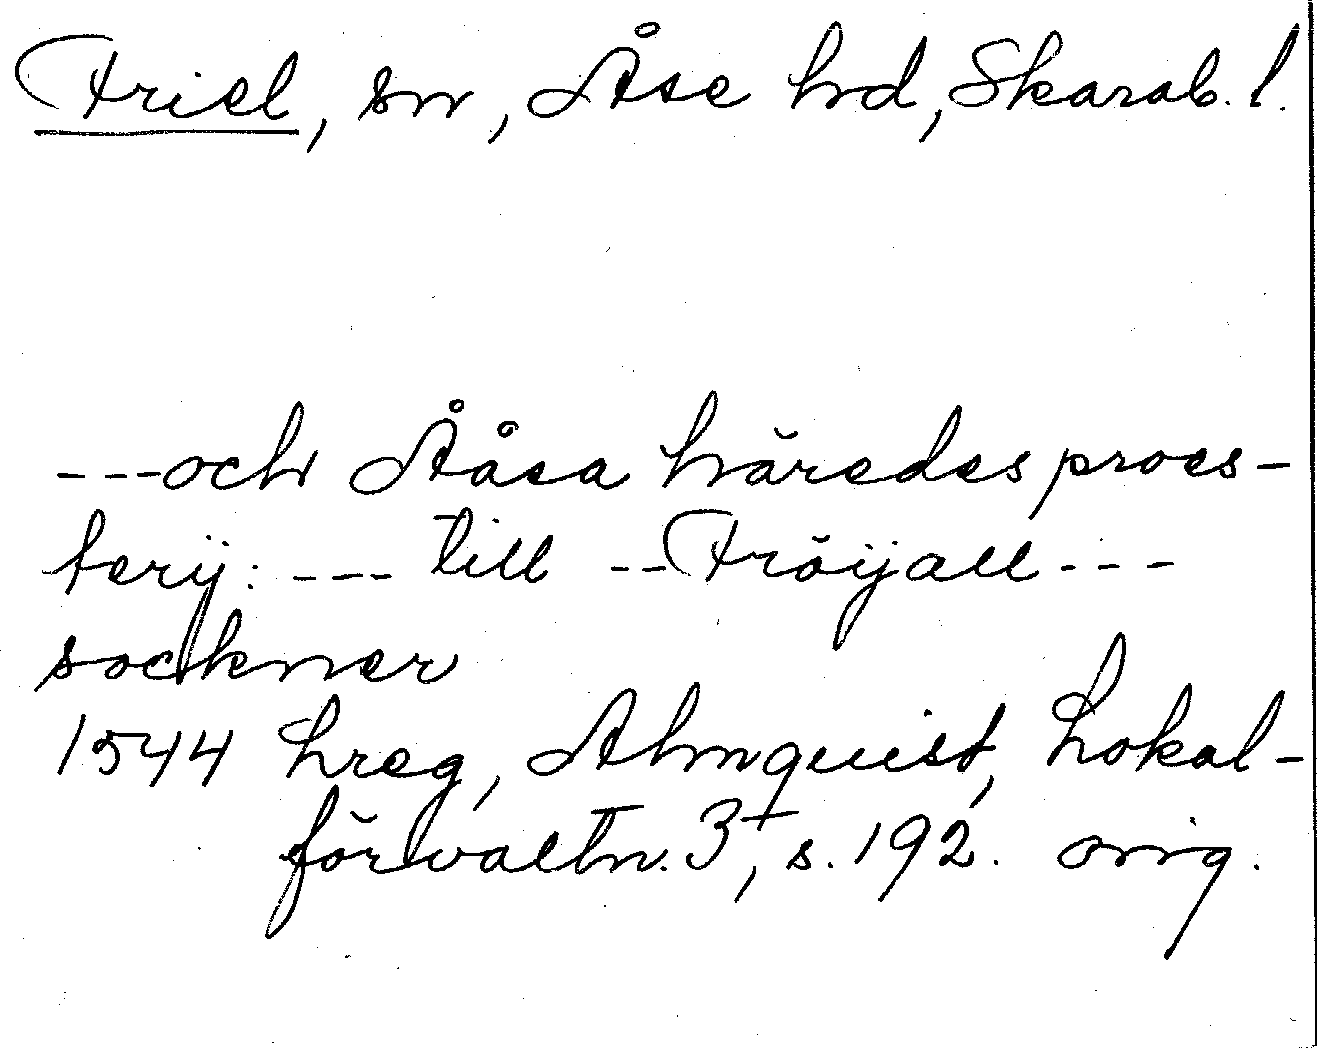 Friel, sn, Åse hd, Skarab. l.
---och Ååsa häredes proes-
terij: --- till --Fröijall---
sockner
1544 Lreg, Almquist, Lokal-
förvaltn. 3⁺, s. 192. orig.